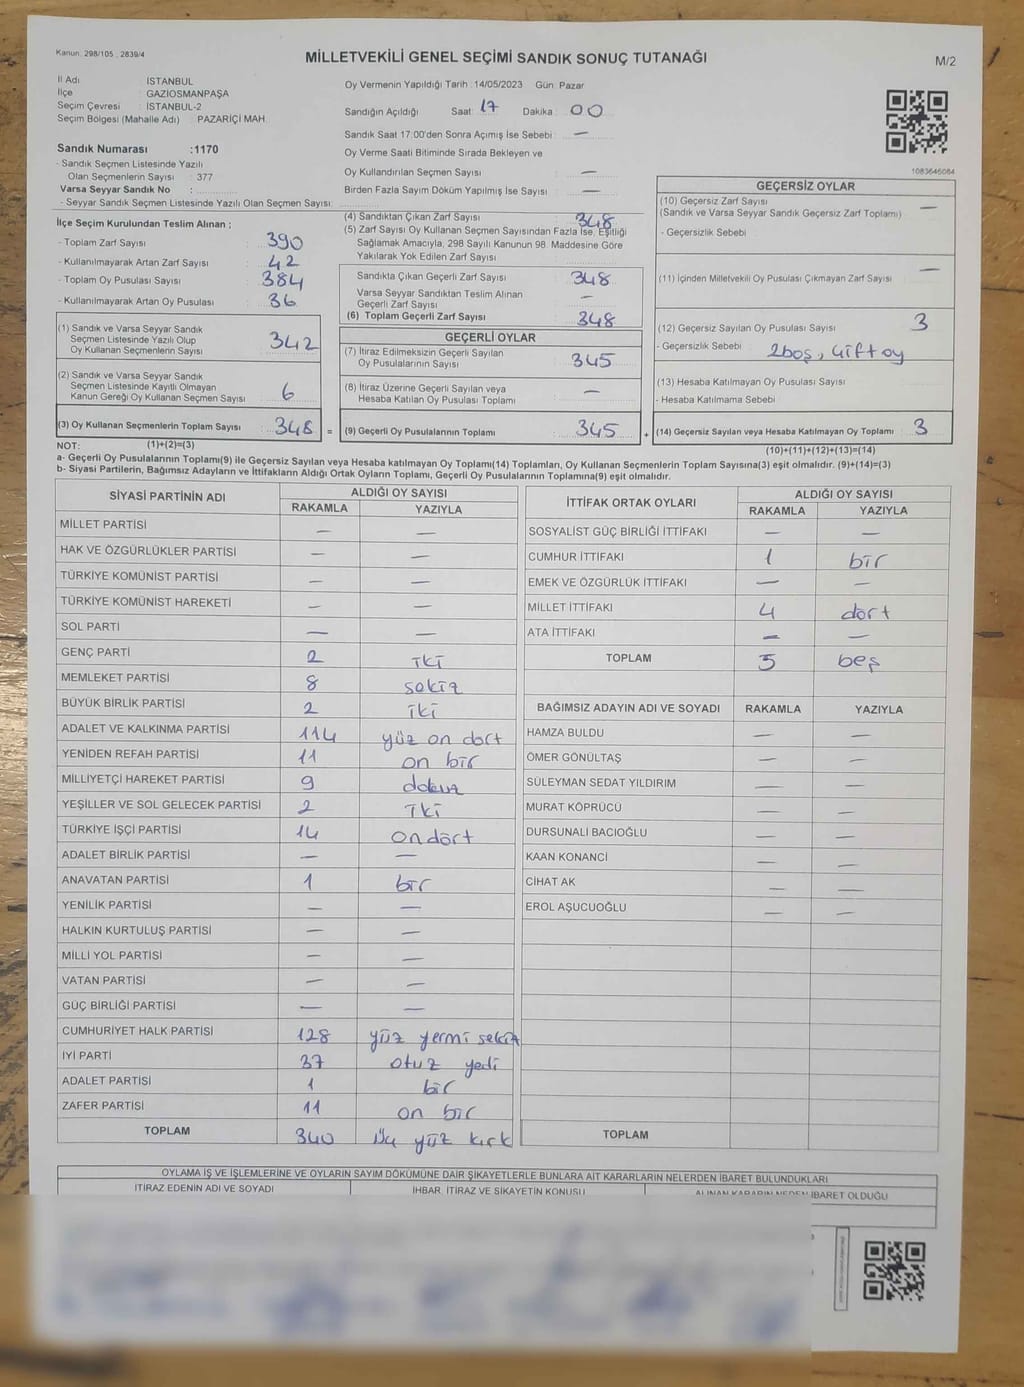 Kanun: 298/105 , 2839/4
MİLLETVEKİLİ GENEL SEÇİMİ SANDIK SONUÇ TUTANAĞI
M/2
İl Adı İSTANBUL
İlçe : GAZİOSMANPAŞA
Seçim Çevresi : İSTANBUL-2
Seçim Bölgesi (Mahalle Adı) : PAZARİÇİ MAH.
Sandık Numarası :1170
- Sandık Seçmen Listesinde Yazılı
Olan Seçmenlerin Sayısı : 377
Varsa Seyyar Sandık No :
- Seyyar Sandık Seçmen Listesinde Yazılı Olan Seçmen Sayısı:
Oy Vermenin Yapıldığı Tarih : 14/05/2023 Gün: Pazar
Sandığın Açıldığı Saat: 17 Dakika: 00
Sandık Saat 17:00'den Sonra Açımış İse Sebebi : —
Oy Verme Saati Bitiminde Sırada Bekleyen ve
Oy Kullandırılan Seçmen Sayısı —
Birden Fazla Sayım Döküm Yapılmış İse Sayısı —
1083646084
İlçe Seçim Kurulundan Teslim Alınan ;
- Toplam Zarf Sayısı : 390
- Kullanılmayarak Artan Zarf Sayısı : 42
- Toplam Oy Pusulası Sayısı : 384
- Kullanılmayarak Artan Oy Pusulası : 36
(1) Sandık ve Varsa Seyyar Sandık
Seçmen Listesinde Yazılı Olup
Oy Kullanan Seçmenlerin Sayısı 342
(2) Sandık ve Varsa Seyyar Sandık
Seçmen Listesinde Kayıtlı Olmayan
Kanun Gereği Oy Kullanan Seçmen Sayısı 6
(3) Oy Kullanan Seçmenlerin Toplam Sayısı 348 =
(4) Sandıktan Çıkan Zarf Sayısı 348
(5) Zarf Sayısı Oy Kullanan Seçmen Sayısından Fazla İse, Eşitliği
Sağlamak Amacıyla, 298 Sayılı Kanunun 98. Maddesine Göre
Yakılarak Yok Edilen Zarf Sayısı
Sandıkta Çıkan Geçerli Zarf Sayısı 348
Varsa Seyyar Sandıktan Teslim Alınan
Geçerli Zarf Sayısı —
(6) Toplam Geçerli Zarf Sayısı 348
GEÇERLİ OYLAR
(7) İtiraz Edilmeksizin Geçerli Sayılan
Oy Pusulalarının Sayısı 345
(8) İtiraz Üzerine Geçerli Sayılan veya
Hesaba Katılan Oy Pusulası Toplamı —
(9) Geçerli Oy Pusulalarının Toplamı 345 +
GEÇERSİZ OYLAR
(10) Geçersiz Zarf Sayısı —
(Sandık ve Varsa Seyyar Sandık Geçersiz Zarf Toplamı)
- Geçersizlik Sebebi
(11) İçinden Milletvekili Oy Pusulası Çıkmayan Zarf Sayısı —
(12) Geçersiz Sayılan Oy Pusulası Sayısı 3
- Geçersizlik Sebebi 2boş, çift oy
(13) Hesaba Katılmayan Oy Pusulası Sayısı
- Hesaba Katılmama Sebebi
(14) Geçersiz Sayılan veya Hesaba Katılmayan Oy Toplamı 3
NOT: (1)+(2)=(3)
(10)+(11)+(12)+(13)=(14)
a- Geçerli Oy Pusulalarının Toplamı(9) ile Geçersiz Sayılan veya Hesaba katılmayan Oy Toplamı(14) Toplamları, Oy Kullanan Seçmenlerin Toplam Sayısına(3) eşit olmalıdır. (9)+(14)=(3)
b- Siyasi Partilerin, Bağımsız Adayların ve İttifakların Aldığı Ortak Oyların Toplamı, Geçerli Oy Pusulalarının Toplamına(9) eşit olmalıdır.
SİYASİ PARTİNİN ADI ALDIĞI OY SAYISI
RAKAMLA YAZIYLA
MİLLET PARTİSİ — —
HAK VE ÖZGÜRLÜKLER PARTİSİ — —
TÜRKİYE KOMÜNİST PARTİSİ — —
TÜRKİYE KOMÜNİST HAREKETİ — —
SOL PARTİ — —
GENÇ PARTİ 2 iki
MEMLEKET PARTİSİ 8 sekiz
BÜYÜK BİRLİK PARTİSİ 2 iki
ADALET VE KALKINMA PARTİSİ 114 yüz on dört
YENİDEN REFAH PARTİSİ 11 on bir
MİLLİYETÇİ HAREKET PARTİSİ 9 dokuz
YEŞİLLER VE SOL GELECEK PARTİSİ 2 iki
TÜRKİYE İŞÇİ PARTİSİ 14 on dört
ADALET BİRLİK PARTİSİ — —
ANAVATAN PARTİSİ 1 bir
YENİLİK PARTİSİ — —
HALKIN KURTULUŞ PARTİSİ — —
MİLLİ YOL PARTİSİ — —
VATAN PARTİSİ — —
GÜÇ BİRLİĞİ PARTİSİ — —
CUMHURİYET HALK PARTİSİ 128 yüz yermi sekiz
İYİ PARTİ 37 otuz yedi
ADALET PARTİSİ 1 bir
ZAFER PARTİSİ 11 on bir
TOPLAM 340 üç yüz kırk
İTTİFAK ORTAK OYLARI ALDIĞI OY SAYISI
RAKAMLA YAZIYLA
SOSYALİST GÜÇ BİRLİĞİ İTTİFAKI — —
CUMHUR İTTİFAKI 1 bir
EMEK VE ÖZGÜRLÜK İTTİFAKI — —
MİLLET İTTİFAKI 4 dört
ATA İTTİFAKI — —
TOPLAM 5 beş
BAĞIMSIZ ADAYIN ADI VE SOYADI RAKAMLA YAZIYLA
HAMZA BULDU — —
ÖMER GÖNÜLTAŞ — —
SÜLEYMAN SEDAT YILDIRIM — —
MURAT KÖPRÜCÜ — —
DURSUNALİ BACIOĞLU — —
KAAN KONANCİ — —
CİHAT AK — —
EROL AŞUCUOĞLU — —
TOPLAM
OYLAMA İŞ VE İŞLEMLERİNE VE OYLARIN SAYIM DÖKÜMÜNE DAİR ŞİKAYETLERLE BUNLARA AİT KARARLARIN NELERDEN İBARET BULUNDUKLARI
İTİRAZ EDENİN ADI VE SOYADI İHBAR, İTİRAZ VE ŞİKAYETİN KONUSU ALINAN KARARIN NEDEN İBARET OLDUĞU